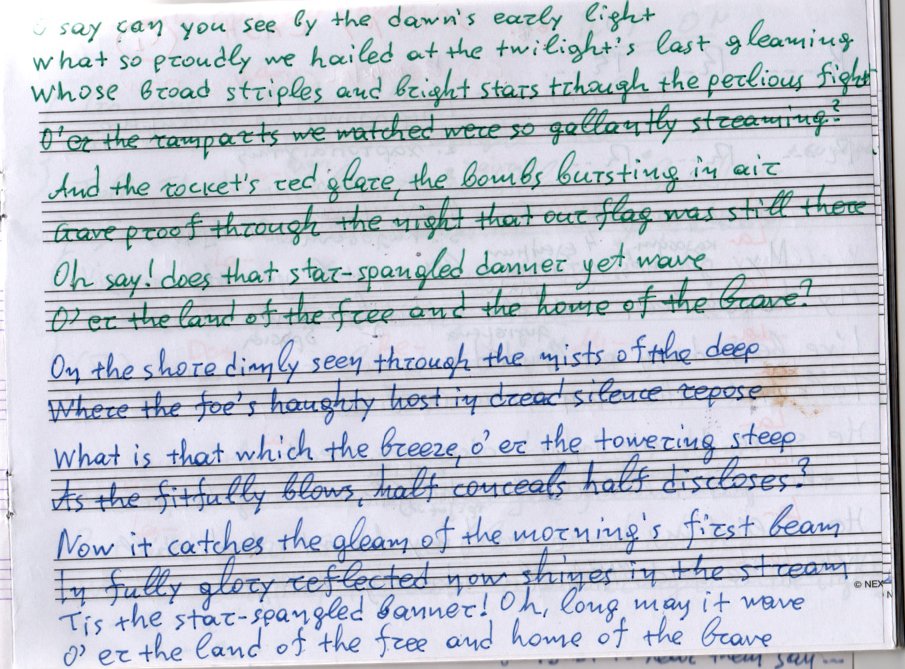 O say can you see by the dawn's early light
what so proudly we hailed at the twilight's last gleaming
whose broad striples and bright stars trhough the perlious fight
O'er the ramparts we watched were so gallantly streaming?
And the rocket's red glare, the bombs bursting in air
Gave proof through the night that our flag was still there
Oh say! does that star-spangled danner yet wave
O'er the land of the free and the home of the brave?
On the shore dimly seen through the mists of the deep
Where the foe's haughty host in dread silence repose
What is that which the breeze, o'er the towering steep
As the fitfully blows, half conceals half discloses?
Now it catches the gleam of the morning's first beam
In fully glory reflected now shines in the stream
Tis the star-spangled banner! Oh, long may it wave
O'er the land of the free and home of the brave
© NEX